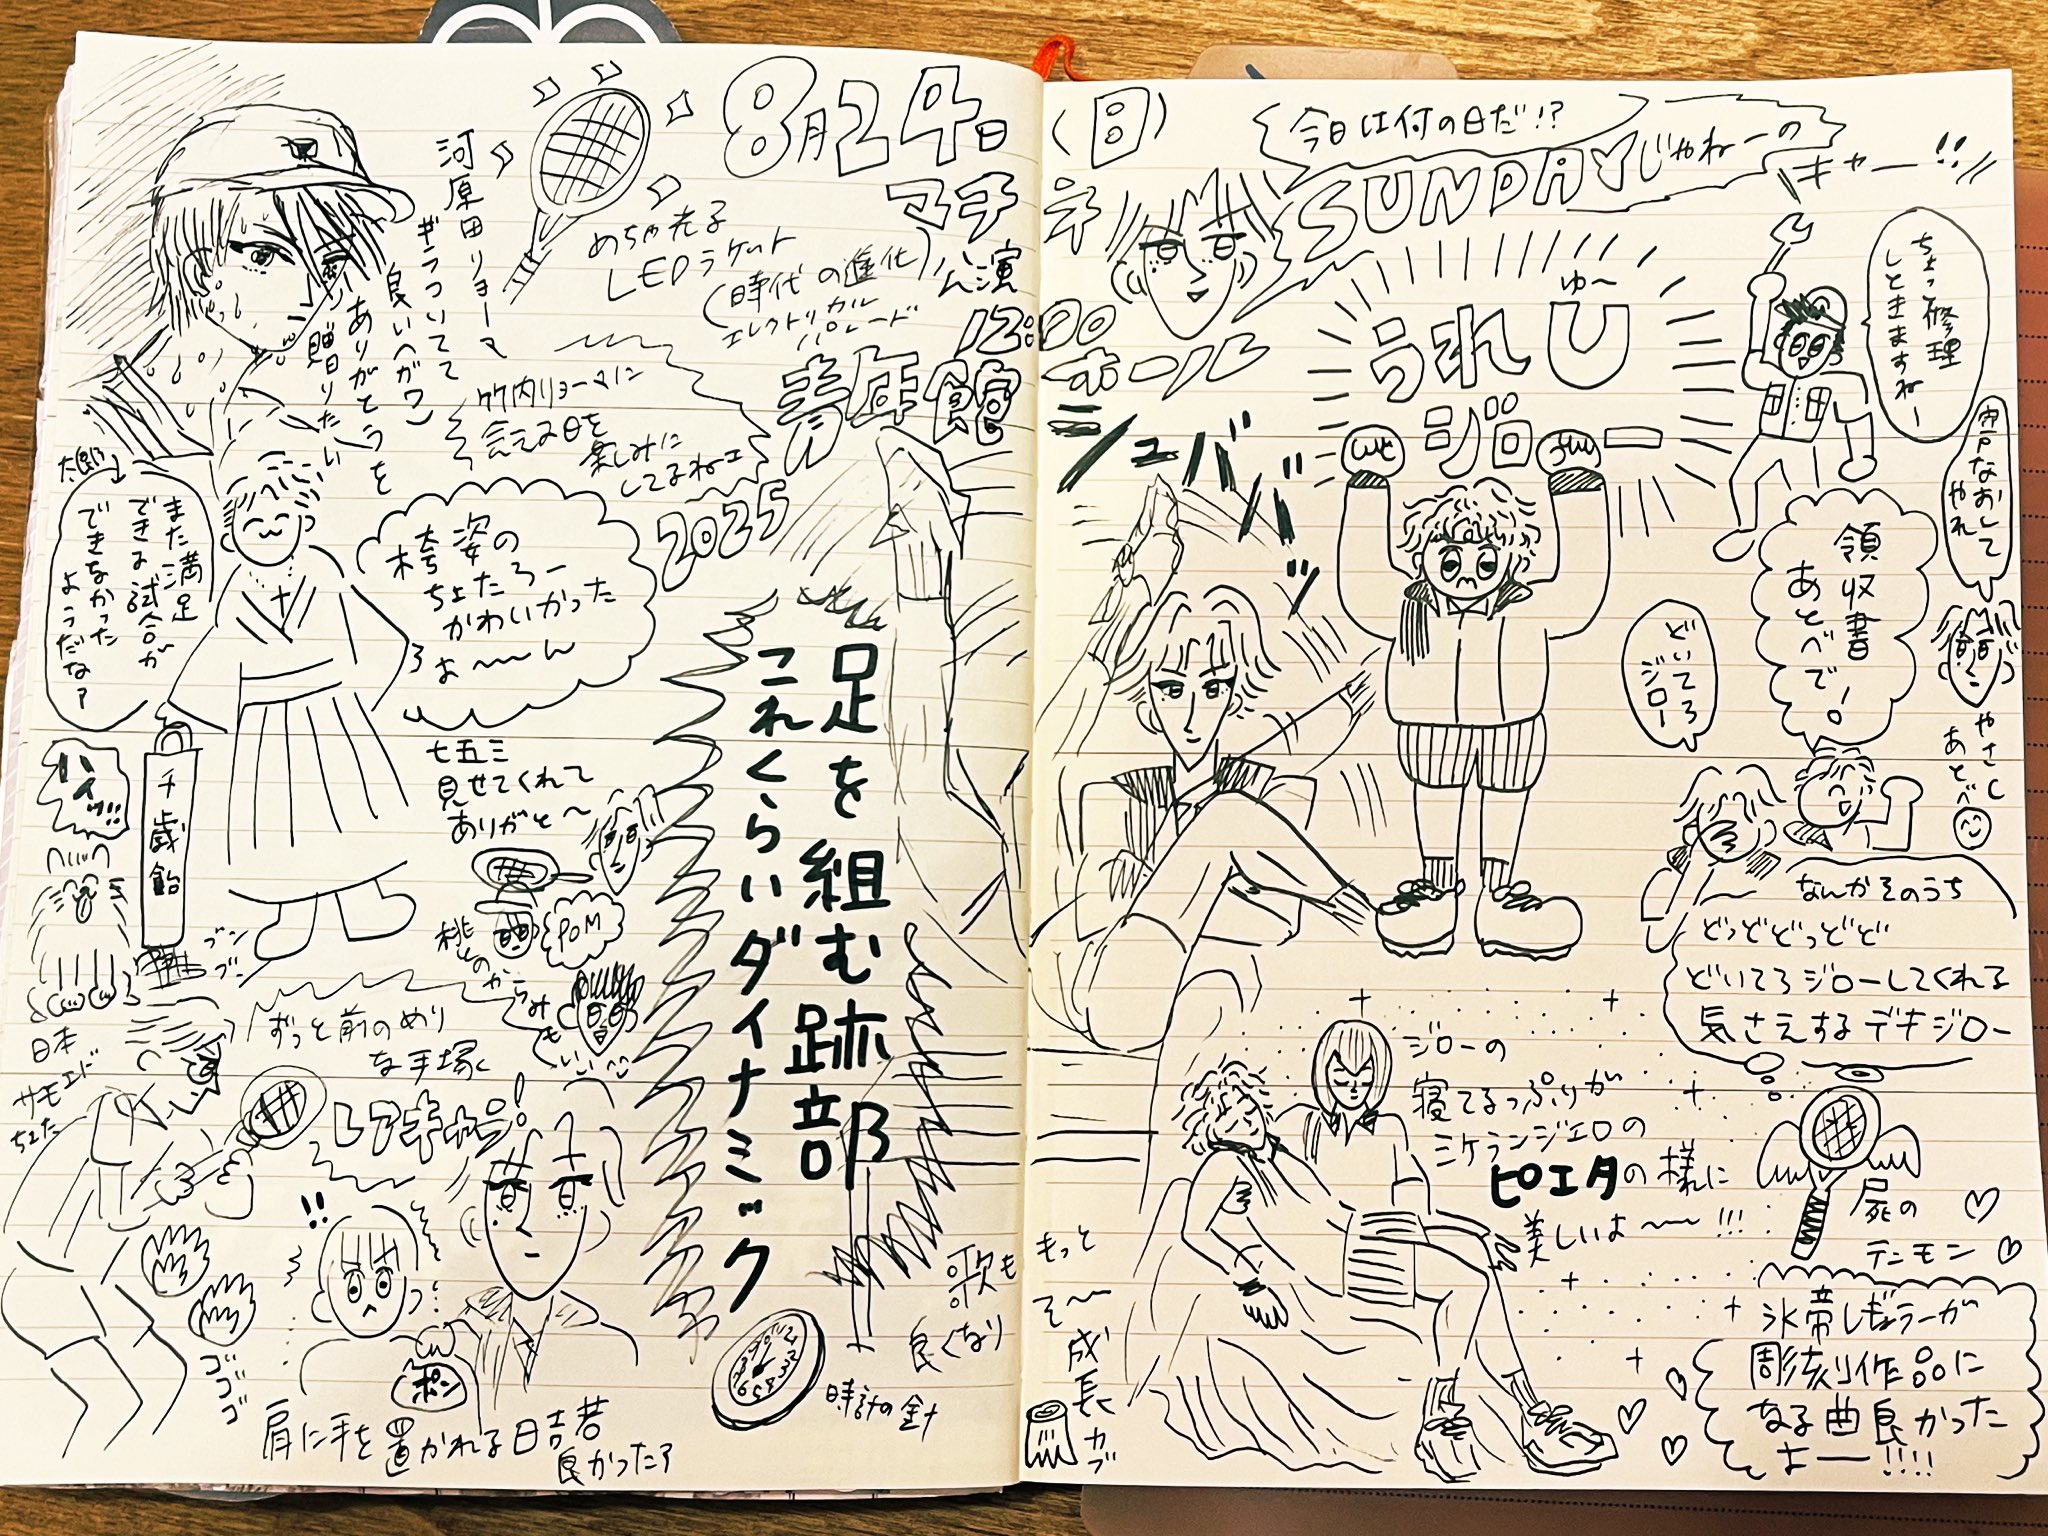 8月24日
(日)
マチネ
公演
12:00
青年館ホール
2025
河原田リョーマ
ギラついてて
良い(ガワ)
ありがとうを
贈りたい
めちゃ光る
LEDラケット
(時代の進化)
エレクトリカル
パレード
竹内リョーマに
会える日を
楽しみに
してるねェ
また満足
できる試合が
できなかった
ようだなァ
袴姿の
ちょたろー
かわいかった
よ〜〜ん
七五三
見せてくれて
ありがと〜
千歳飴
ハイッ!!
ブン
ブン
日本
サモエド
ちょた
POM
桃とのからみもいい
ずっと前のめり
な手塚く
レアキャラ!
!!
ゴゴゴゴ
ポン
肩に手を置かれる日吉若
良かったァ
足を組む跡部
これくらいダイナミック
時計の針
歌も
良くなり
もっと
そ〜
成長カブ
今日は何の日だ!?
SUNDAYじゃねーの
キャー!!
シュバババッ
うれしゅ〜
ジロー
ちょっ修理
しときますねー
なおして
やれ
領収書
あとべで!
やさC
あとべ
どいてろ
ジロー
なんかそのうち
どっどどっどど
どいてろジローしてくれる
気さえするデキジロー
ジローの
寝てるっぷりが
ミケランジェロの
ピエタの様に
美しいよ〜〜!!!
屍の
テニモン
氷帝レギュラーが
彫刻作品に
なる曲良かった
よー!!!!